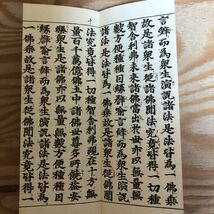 言辭而為衆生演說諸法是法皆為一佛乘
故是諸衆生從諸佛聞法究竟皆得一切種
智舍利弗未來諸佛當出於世亦以無量無
數方便種種因緣譬喻言辭而為衆生演說
諸法是法皆為一佛乘故是諸衆生從佛聞
十
法究竟皆得一切種智舍利弗現在十方無
量百千萬億佛土中諸佛世尊多所饒益安
樂衆生是諸佛亦以無量無數方便種種因
緣譬喻言辭而為衆生演說諸法是法皆為
一佛乘故是諸衆生從佛聞法究竟皆得一切種